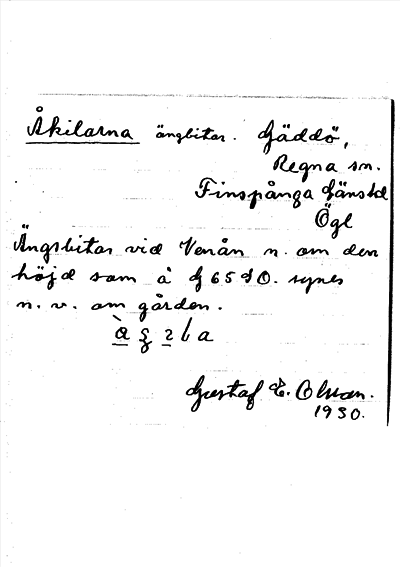 Åkilarna ängbitar. Gäddö,
Regna sn.
Finspånga länshd
Ögl
Ängsbitar vid Venån n. om den
höjd som å G 65 d O. synes
n. v. om gården.
Gustaf E. Olsson.
1930.